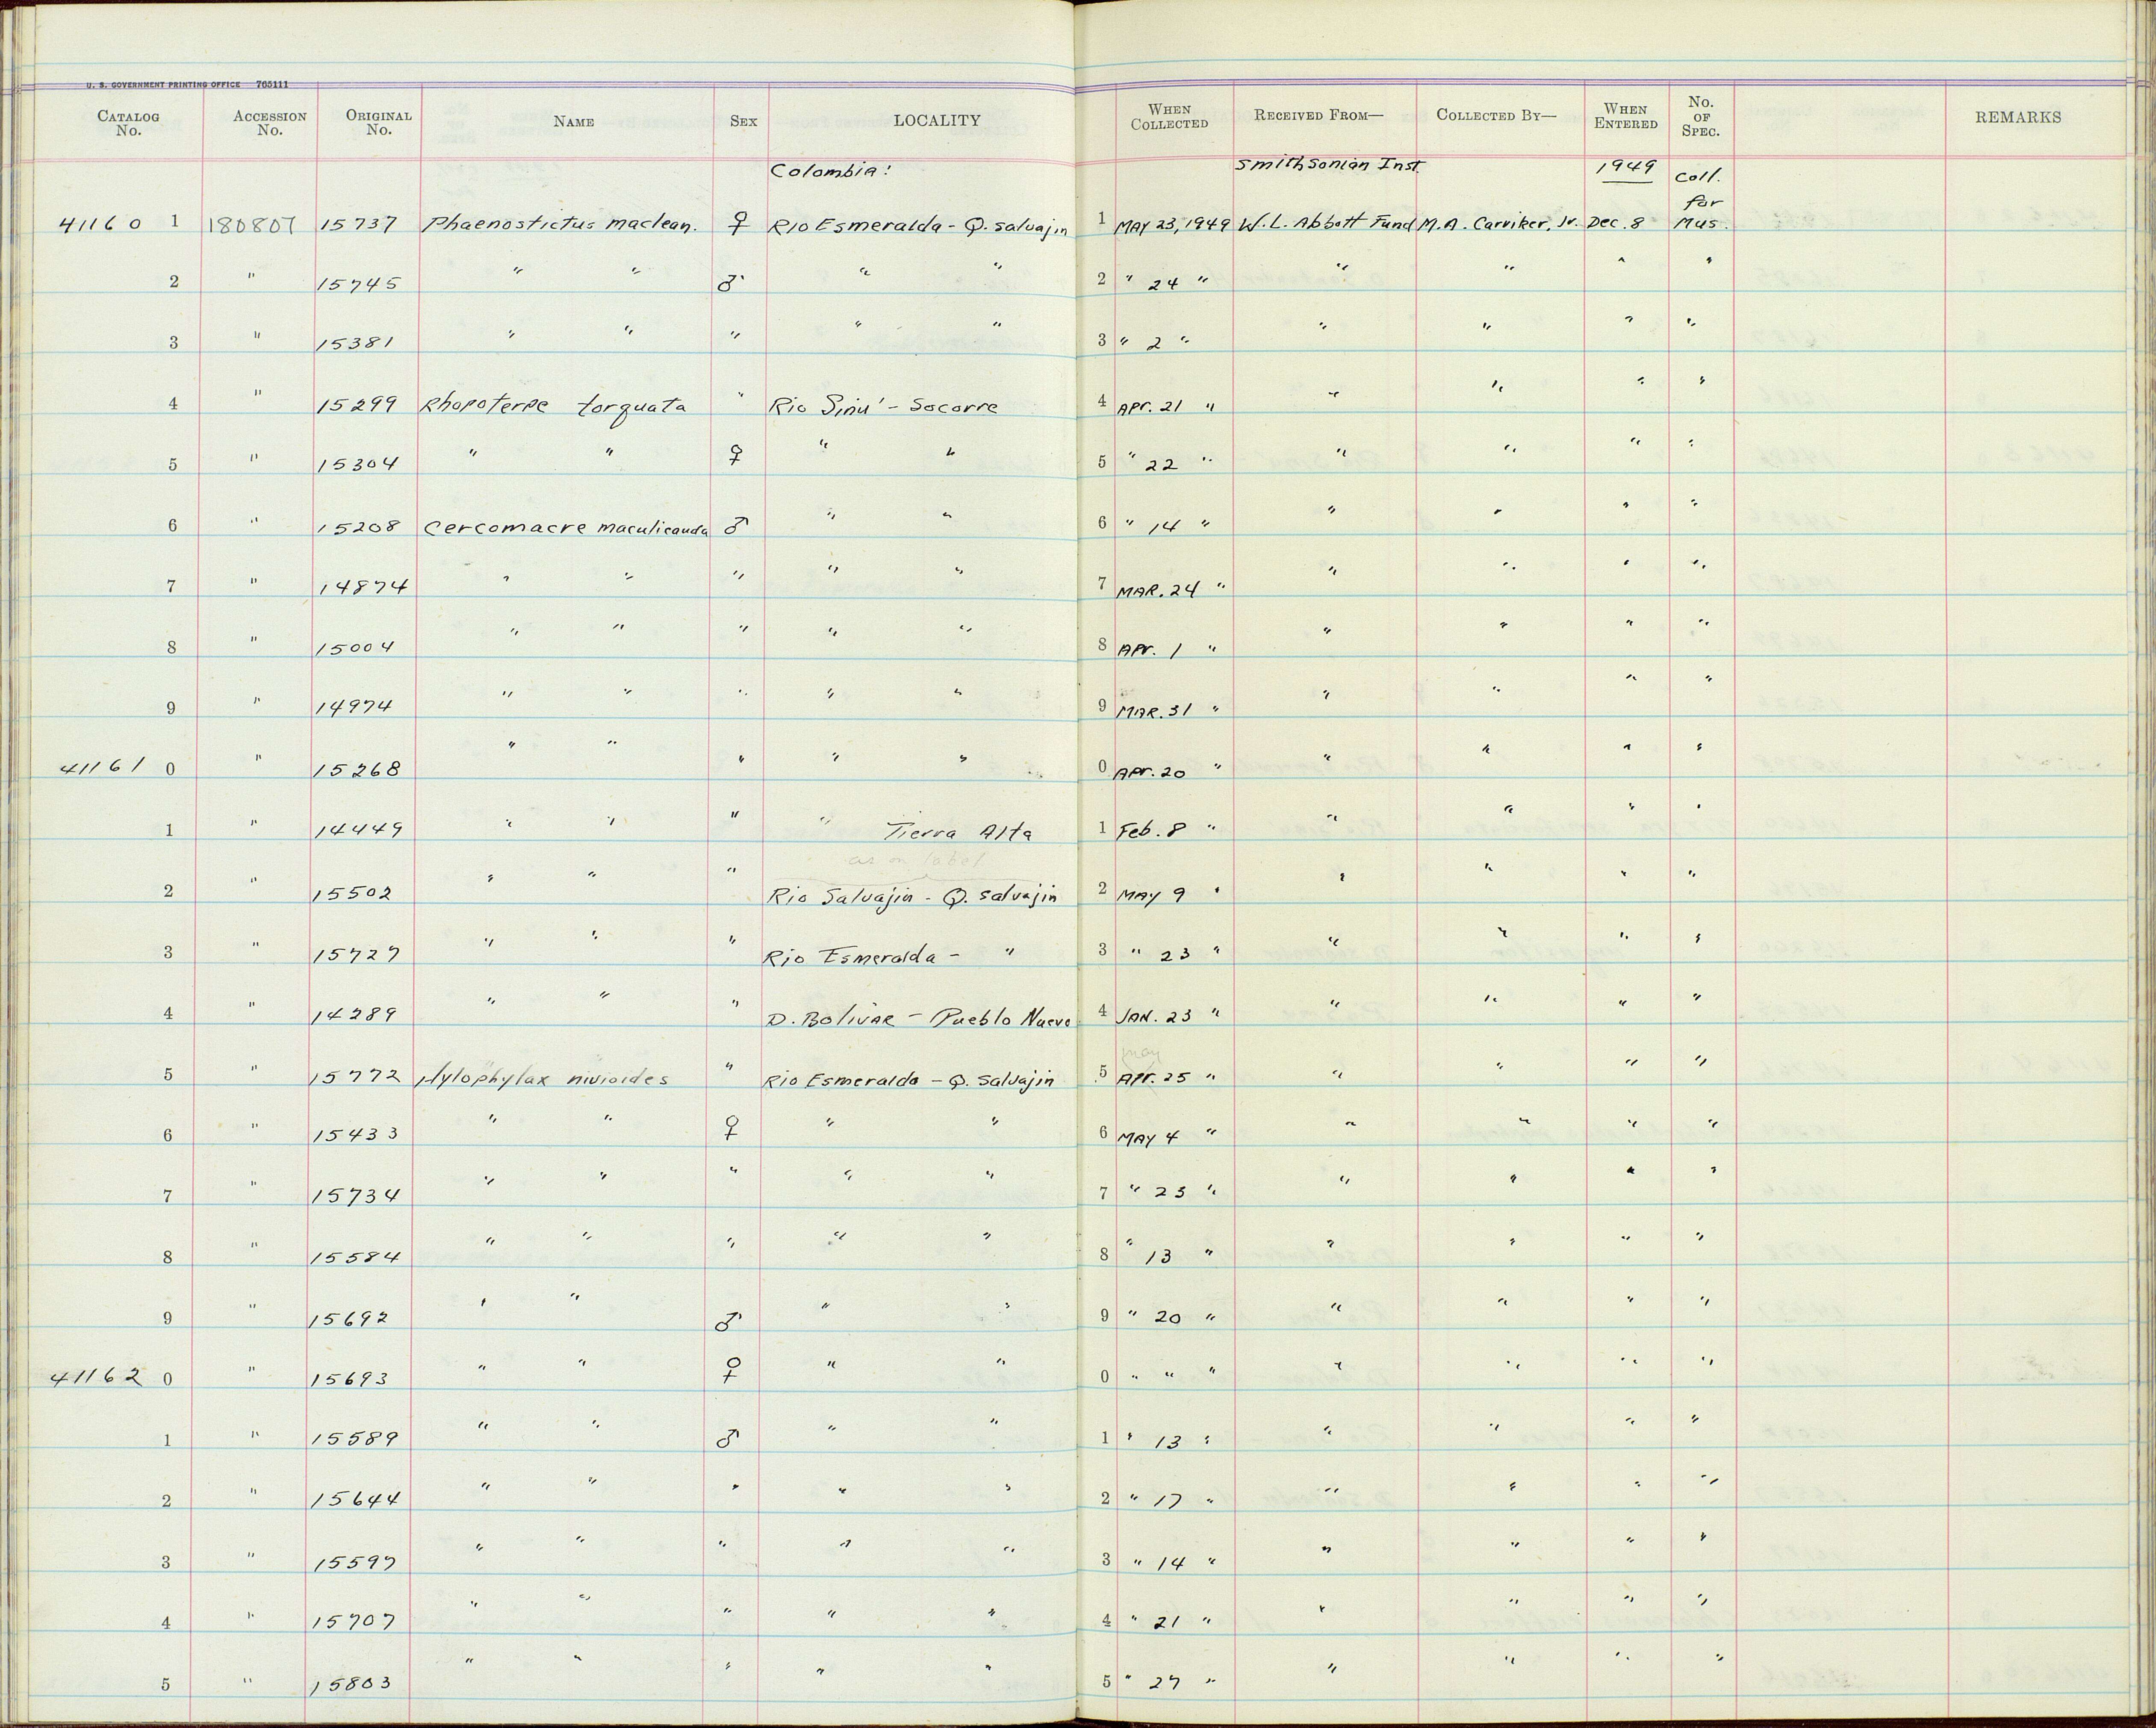 U. S. GOVERNMENT PRINTING OFFICE 765111
CATALOG No. ACCESSION No. ORIGINAL No. NAME SEX LOCALITY WHEN COLLECTED RECEIVED FROM— COLLECTED BY— WHEN ENTERED No. OF SPEC. REMARKS
Colombia: Smithsonian Inst. 1949 Coll. for
41160 1 180807 15737 Phaenostictus maclean. ♀ Rio Esmeralda - Q. Salvajin 1 MAY 23, 1949 W. L. Abbott Fund M. A. Carriker, Jr. Dec. 8 Mus.
2 " 15745 " " ♂ " " 2 " 24 " " " " "
3 " 15381 " " " " " 3 " 2 " " " " "
4 " 15299 Rhopoterpe torquata " Rio Sinu' - Socorre 4 APr. 21 " " " " "
5 " 15304 " " ♀ " " 5 " 22 " " " " "
6 " 15208 Cercomacre maculicauda ♂ " " 6 " 14 " " " " "
7 " 14874 " " " " " 7 MAR. 24 " " " " "
8 " 15004 " " " " " 8 APr. 1 " " " " "
9 " 14974 " " " " " 9 MAR. 31 " " " " "
41161 0 " 15268 " " " " " 0 APr. 20 " " " " "
1 " 14449 " " " " Tierra Alta 1 Feb. 8 " " " " "
as on label
2 " 15502 " " " Rio Salvajin - Q. Salvajin 2 MAY 9 " " " " "
3 " 15727 " " " Rio Esmeralda - " 3 " 23 " " " " "
4 " 14289 " " " D. BOLIVAR - Pueblo Nuevo 4 JAN. 23 " " " " "
may
5 " 15772 Hylophylax nivioides " Rio Esmeralda - Q. Salvajin 5 APr. 25 " " " " "
6 " 15433 " " ♀ " " 6 MAY 4 " " " " "
7 " 15734 " " " " " 7 " 23 " " " " "
8 " 15584 " " " " " 8 " 13 " " " " "
9 " 15692 " " ♂ " " 9 " 20 " " " " "
41162 0 " 15693 " " ♀ " " 0 " " " " " " "
1 " 15589 " " ♂ " " 1 " 13 " " " " "
2 " 15644 " " " " " 2 " 17 " " " " "
3 " 15597 " " " " " 3 " 14 " " " " "
4 " 15707 " " " " " 4 " 21 " " " " "
5 " 15803 " " " " " 5 " 27 " " " " "